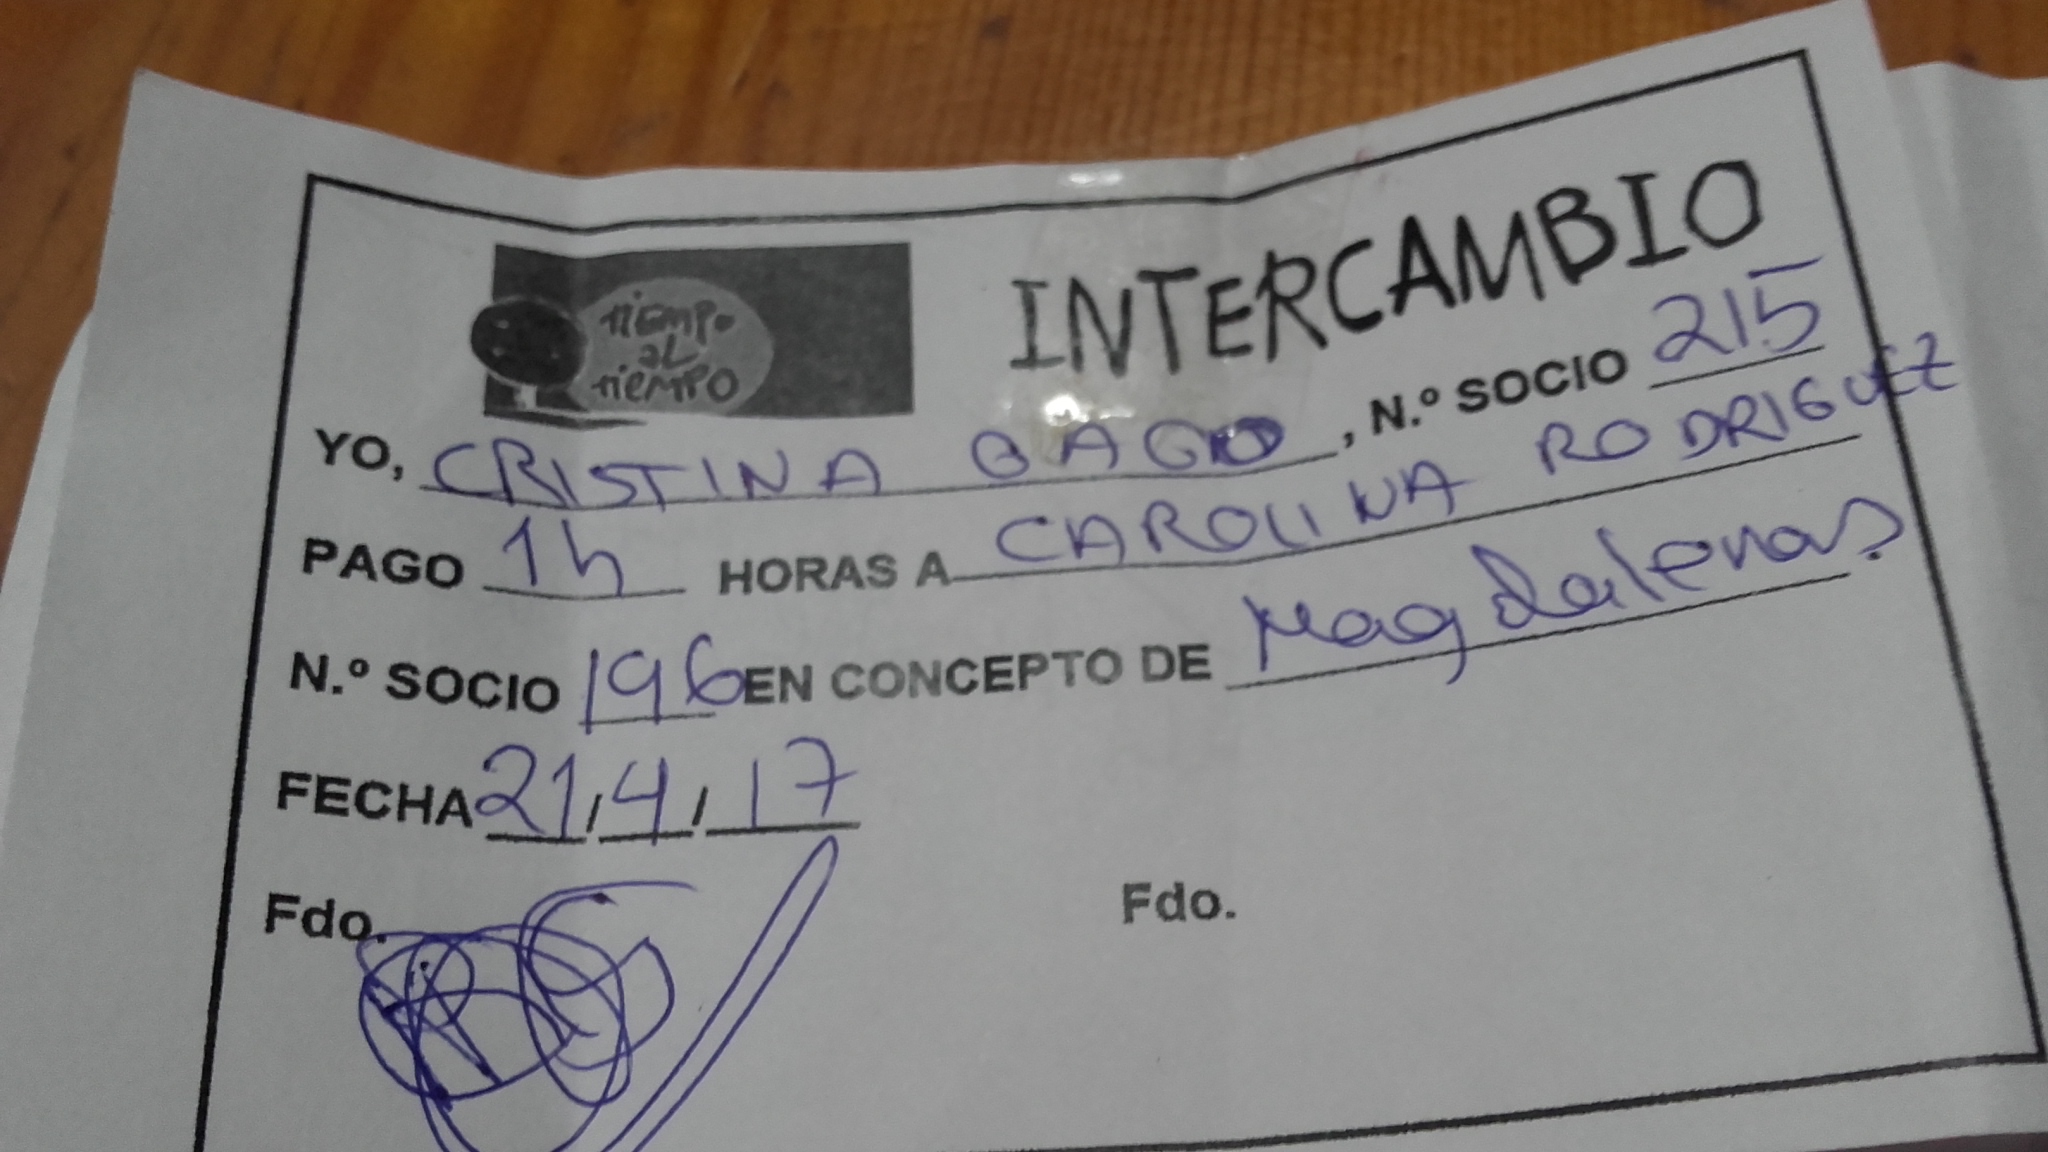 tiempo
al
tiempo
INTERCAMBIO
YO, CRISTINA GAGO, N.º SOCIO 215
PAGO 1h HORAS A CAROLINA RODRIGUEZ
N.º SOCIO 196 EN CONCEPTO DE Magdalenas
FECHA 21/4/17
Fdo. Fdo.